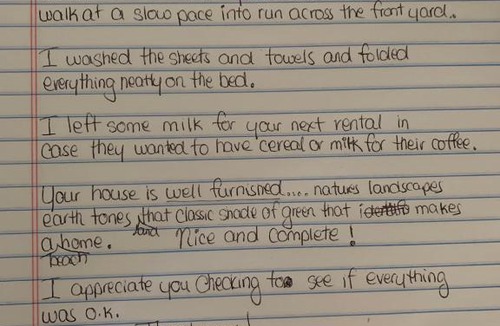 walk at a slow pace into run across the front yard.
I washed the sheets and towels and folded
everything neatly on the bed.
I left some milk for your next rental in
case they wanted to have cereal or milk for their coffee.
Your house is well furnished.... natures landscapes
earth tones, that classic shade of green that makes
a beach home. and Nice and complete!
I appreciate you checking to see if everything
was o.k.